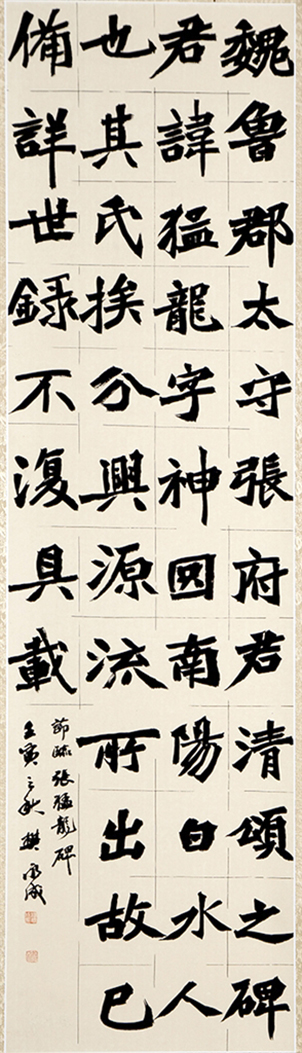 魏魯郡太守張府君清頌之碑
君諱猛龍字神囧南陽白水人
也其氏族分興源流所出故已
備詳世録不復具載
節臨張猛龍碑
壬寅之秋樊